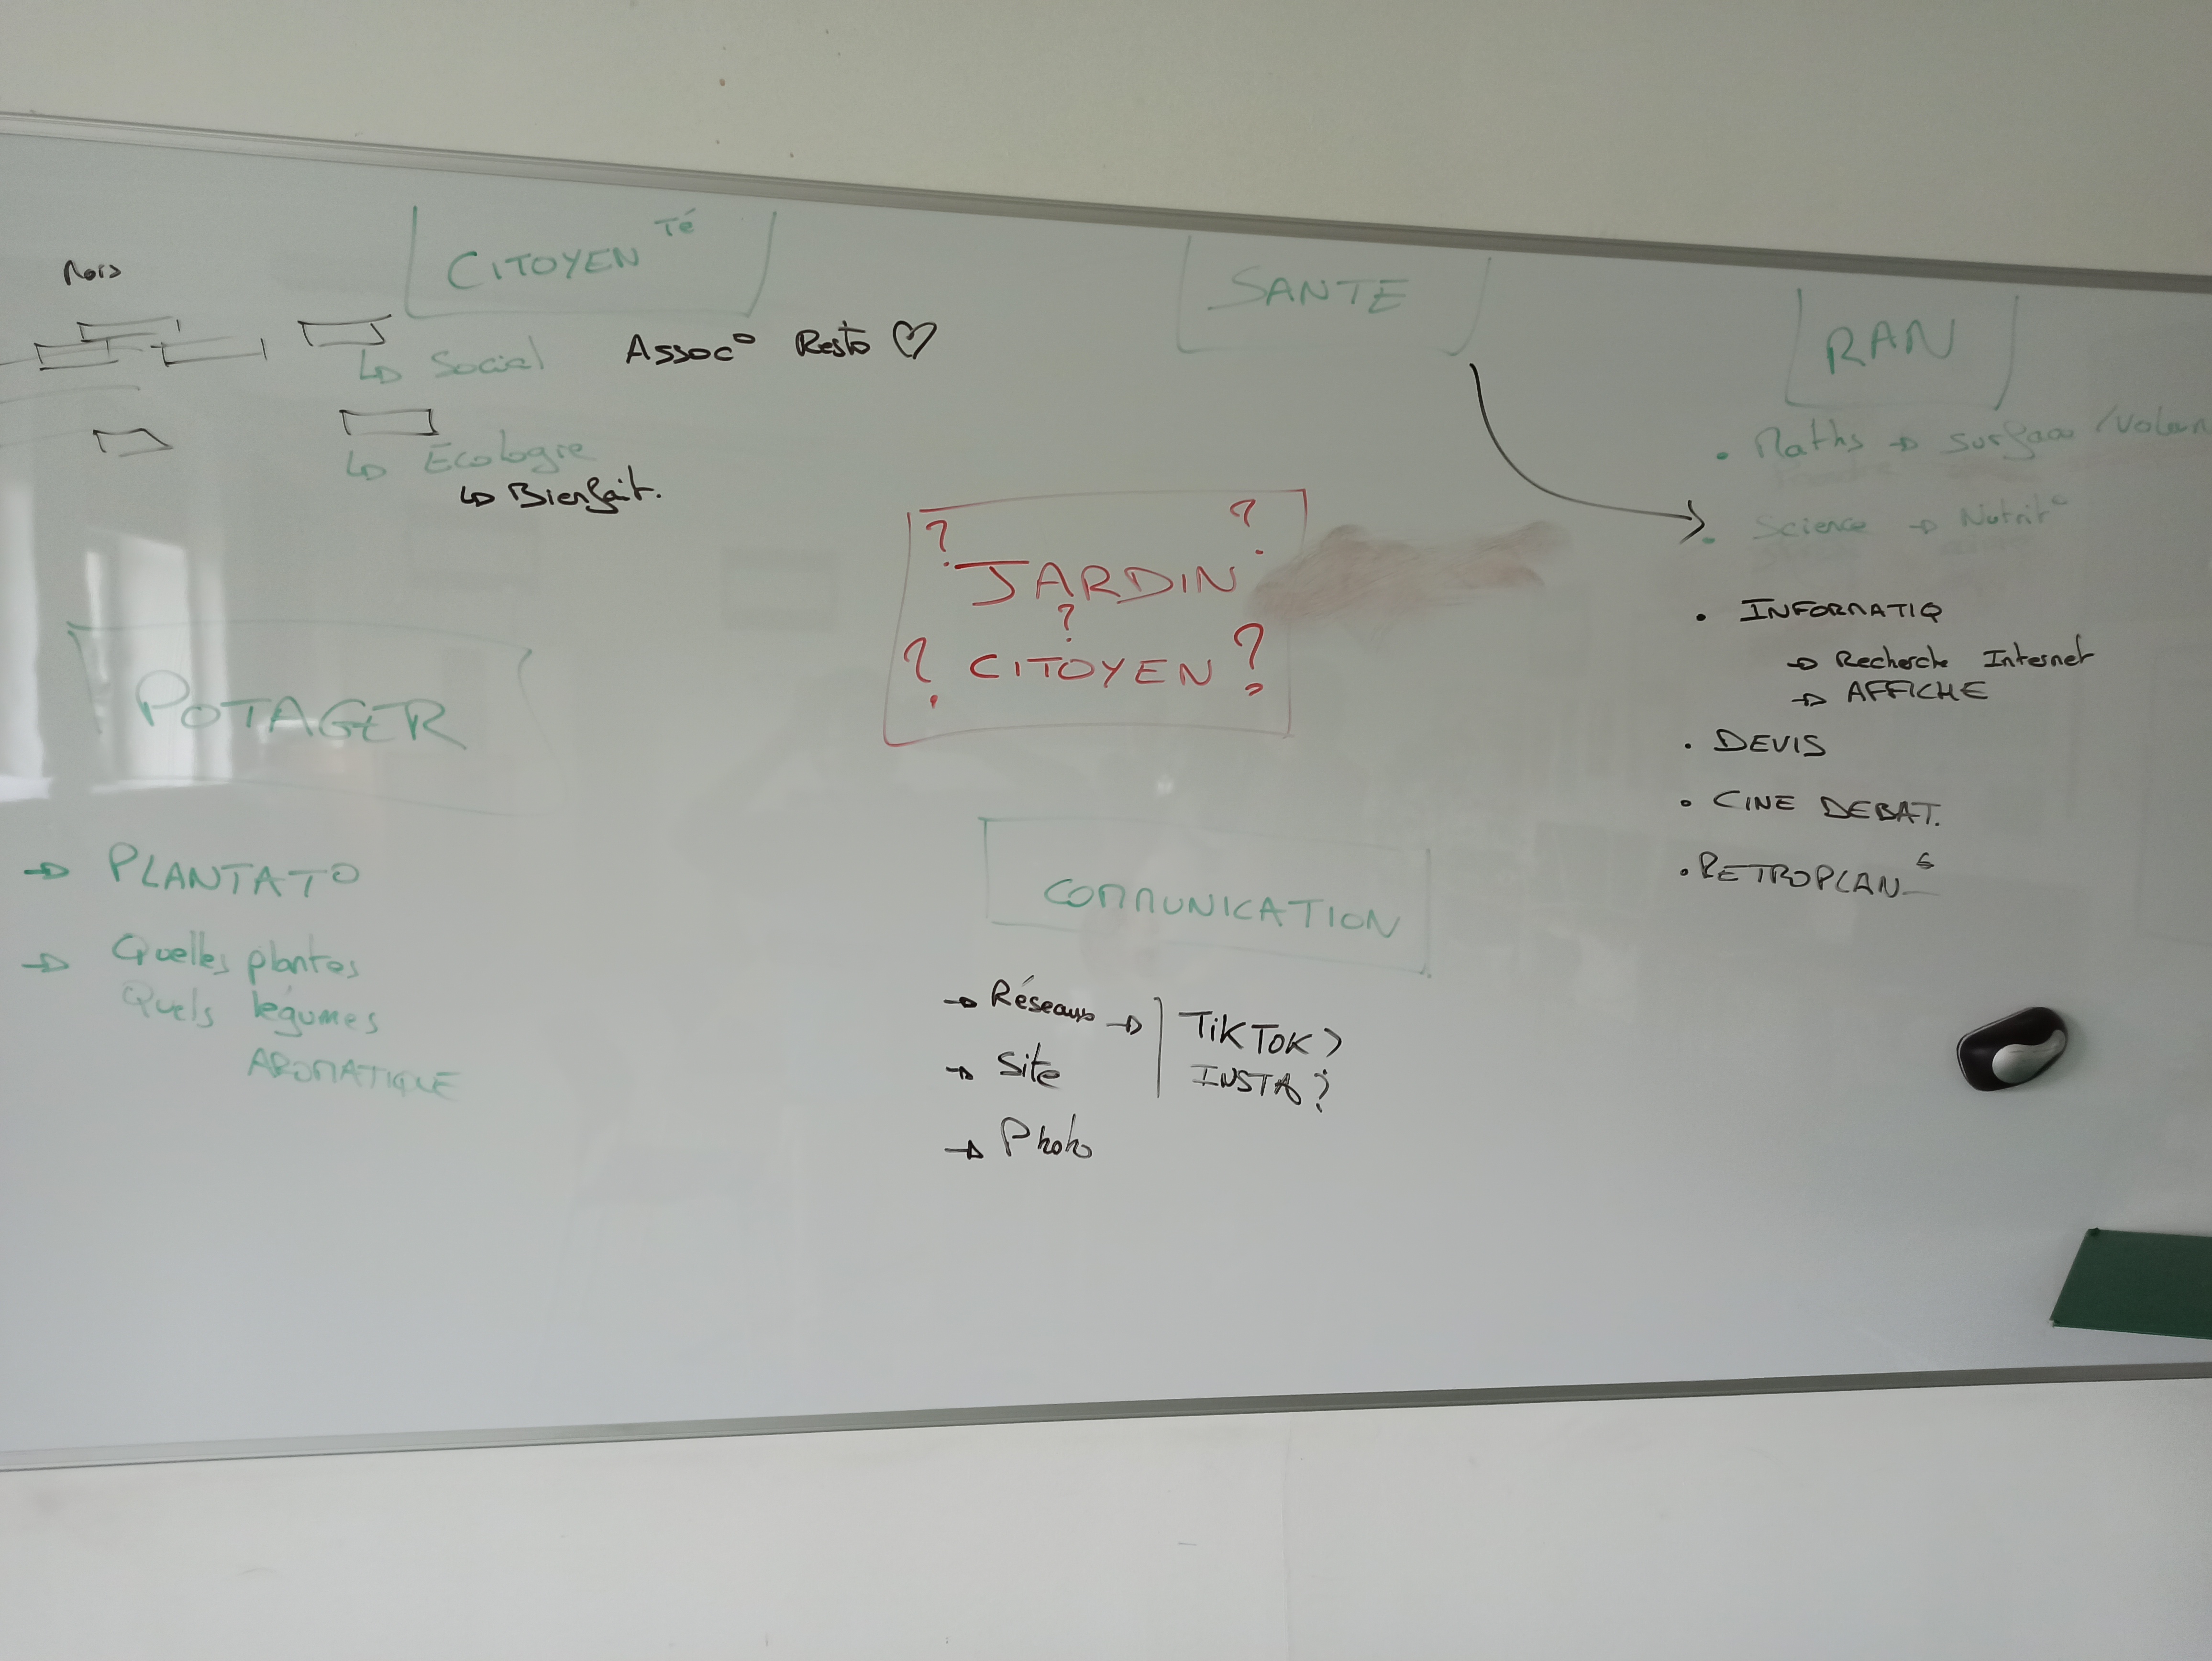 CITOYEN Té
↳ Social Assoc° Resto ♡
↳ Ecologie
↳ Bienfait.
SANTE
RAN
• Maths → Surface /Volum
• Science → Nutrit°
• INFORMATIQ
→ Recherche Internet
→ AFFICHE
• DEVIS
• CINE DEBAT.
• RETROPLAN
? ?
JARDIN
?
? CITOYEN ?
POTAGER
→ PLANTAT°
→ Quelles plantes
Quels légumes
AROMATIQUE
COMMUNICATION
→ Réseaux → TiKTOK ?
→ Site INSTA ?
→ Photo